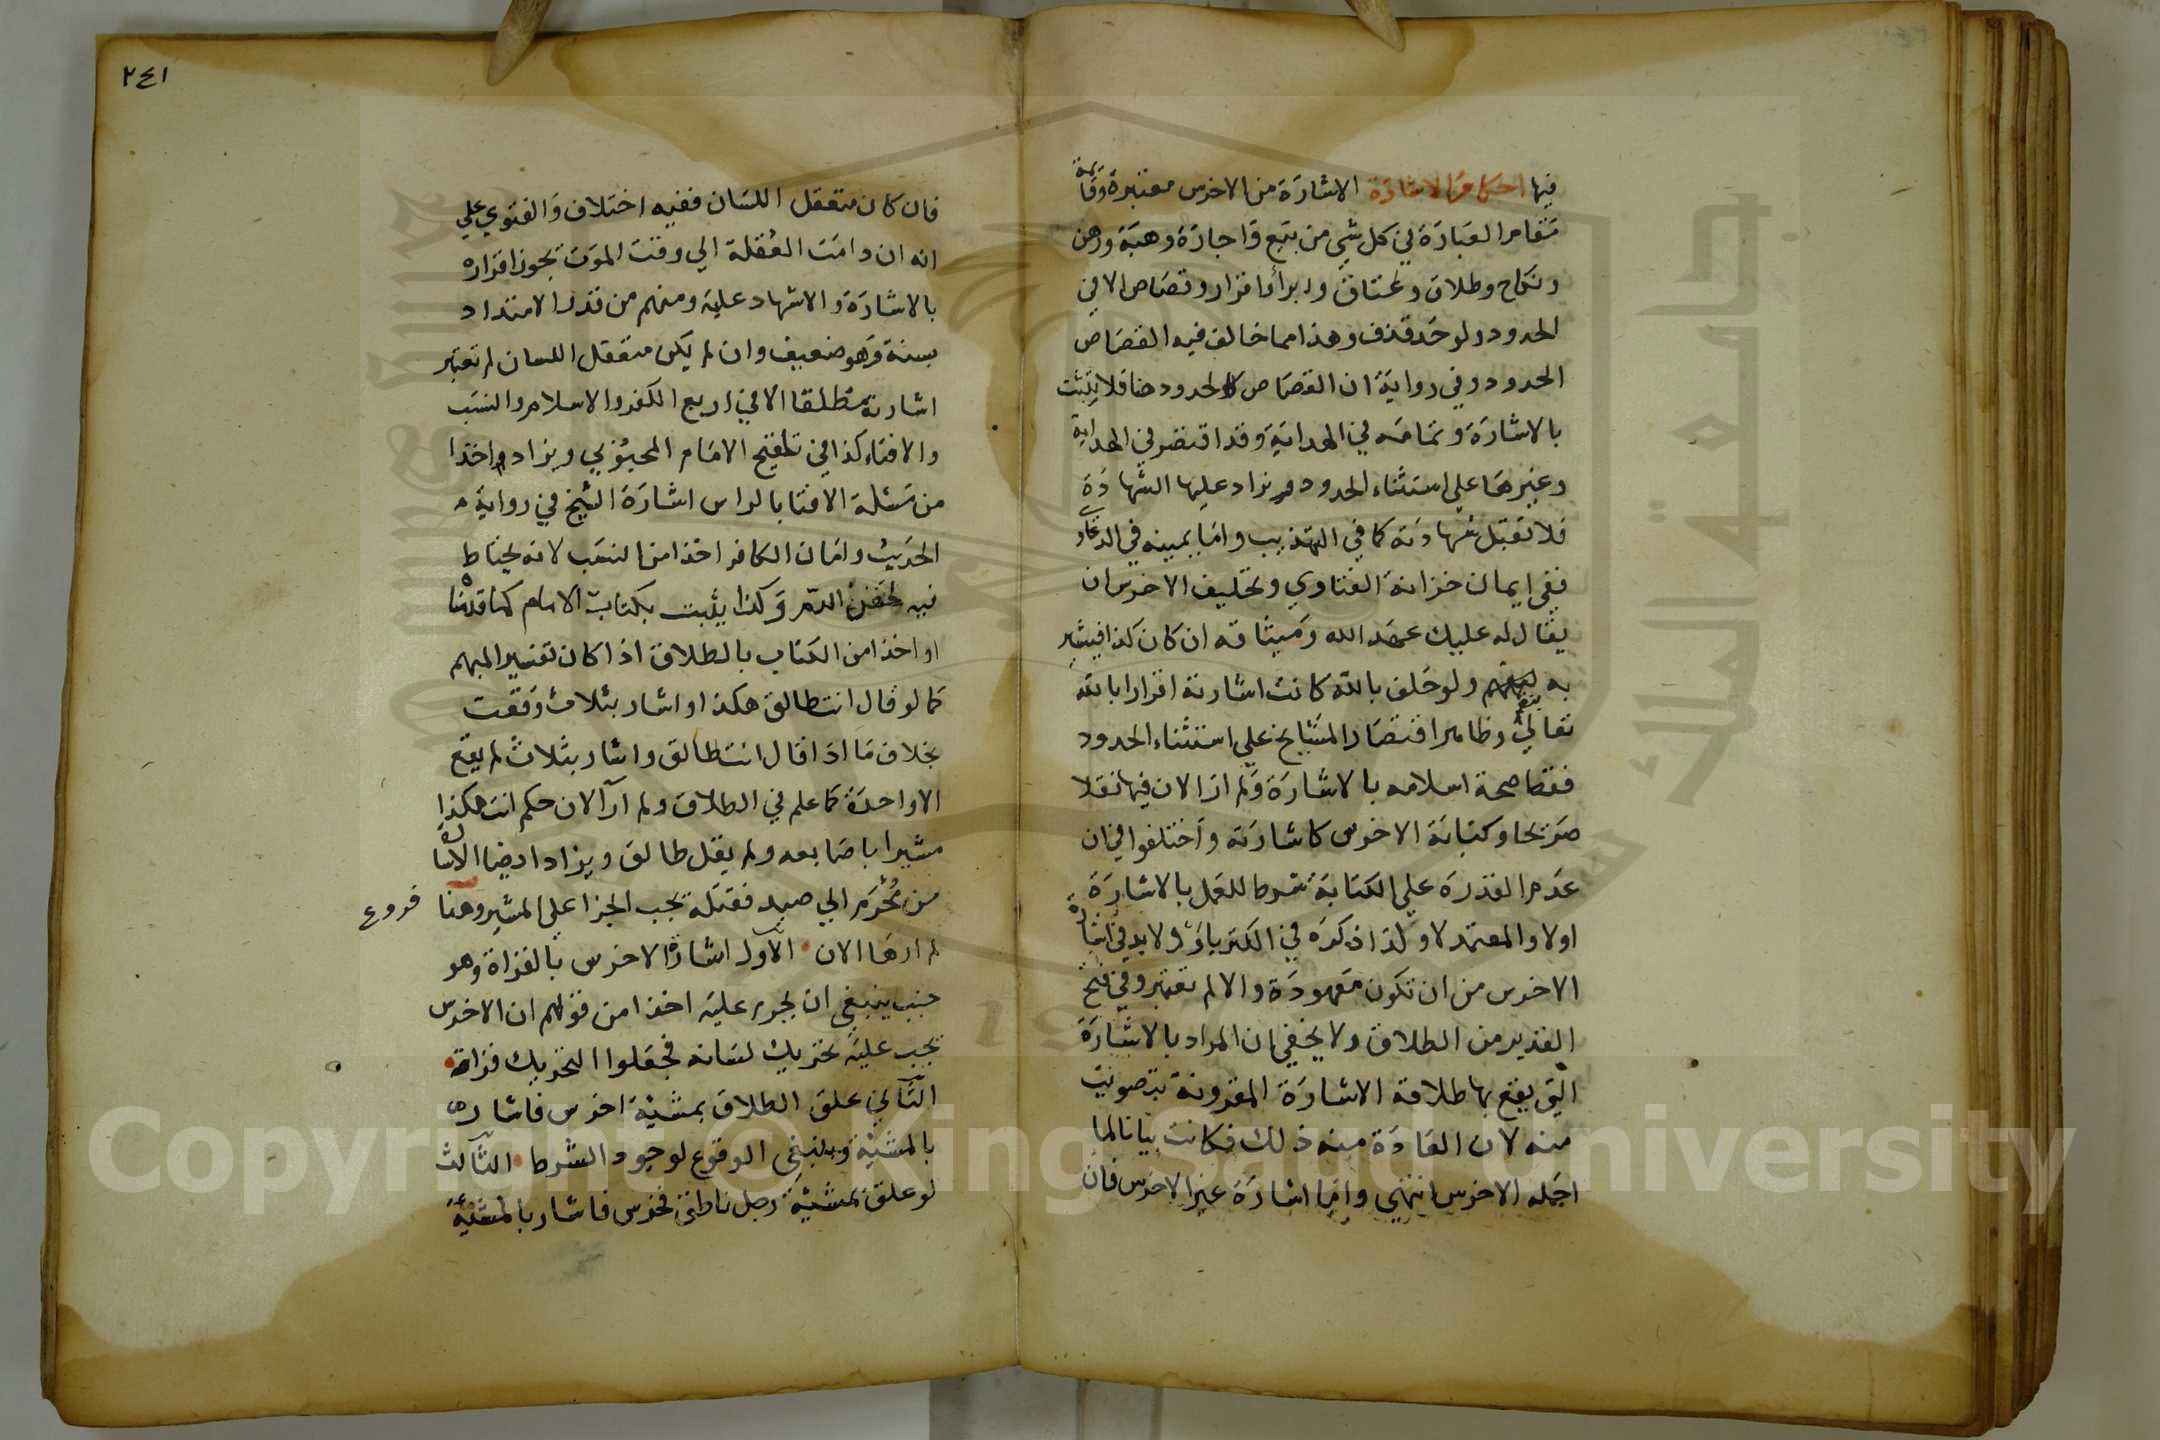 فيها احكام الاشارة الاشارة من الاخرس معتبرة وقائمة
مقام العبارة في كل شي من بيع واجارة وهبة ورهن
ونكاح وطلاق وعتاق وابرا واقرار وقصاص الا في
الحدود ولو حد قذف وهذا مما خالف فيه القصاص
الحدود وفي رواية ان القصاص كالحدود هنا فلا يثبت
بالاشارة وتمامه في الهداية وقد اقتصر في الهداية
وغيرها علي استثناء الحدود ويزاد عليها الشهادة
فلا تقبل شهادته كما في التهذيب واما يمينه في الدعاوي
ففي ايمان خزانة الفتاوي وتحليف الاخرس ان
يقال له عليك عهد الله وميثاقه ان كان كذا فيشير
به بنعم ولو حلف بالله كانت اشارته اقرارا بالله
تعالي وظاهر اقتصار المشايخ علي استثناء الحدود
فقط صحة اسلامه بالاشارة ولم ار الان فيها نقلا
صريحا وكتابة الاخرس كاشارته واختلفوا في ان
عدم القدرة علي الكتابة شرط للعمل بالاشارة
اولا والمعتمد لا ولذا ذكره في الكنز باو ولا بد في اشارة
الاخرس من ان تكون معهودة والا لم تعتبر وفي فتح
القدير من الطلاق ولا يخفي ان المراد بالاشارة
التي يقع بها طلاقه الاشارة المقرونة بتصويت
منه لان العادة منه ذلك فكانت بيانا لما
اجمله الاخرس انتهي واما اشارة غير الاخرس فان
٢٤١
فان كان معتقل اللسان ففيه اختلاف والفتوي علي
انه ان دامت العقلة الي وقت الموت تجوز اقراره
بالاشارة والاشهاد عليه ومنهم من قدر الامتداد
بسنة وهو ضعيف وان لم يكن معتقل اللسان لم تعتبر
اشارته مطلقا الا في اربع الكفر والاسلام والنسب
والافتاء كذا في تلقيح الامام المحبوبي ويزاد اخذا
من مسئلة الافتا بالراس اشارة الشيخ في رواية
الحديث وامان الكافر اخذا من النسب لانه يحتاط
فيه لحقن الدم وكذا يثبت بكتاب الامام كما قدمنا
او اخذا من الكتاب بالطلاق اذا كان تفسيرا لمبهم
كما لو قال انت طالق هكذا واشار بثلاث وقعت
بخلاف ما اذا قال انت طالق واشار بثلاث لم يقع
الا واحدة كما علم في الطلاق ولم ار الان حكم انت هكذا
مشيرا باصابعه ولم يقل طالق ويزاد ايضا الاشارة
من محرم الي صيد فقتله يجب الجزا علي المشير وهنا
فروع
لم ارها الان الاول اشارة الاخرس بالقراة وهو
جنب ينبغي ان يحرم عليه اخذا من قولهم ان الاخرس
يجب عليه تحريك لسانه فجعلوا التحريك قراة
الثاني علق الطلاق بمشيئة اخرس فاشار
بالمشيئة وينبغي الوقوع لوجود الشرط الثالث
لو علق بمشيئة رجل ناطق فخرس فاشار بالمشيئة
Copyright © King Saud University